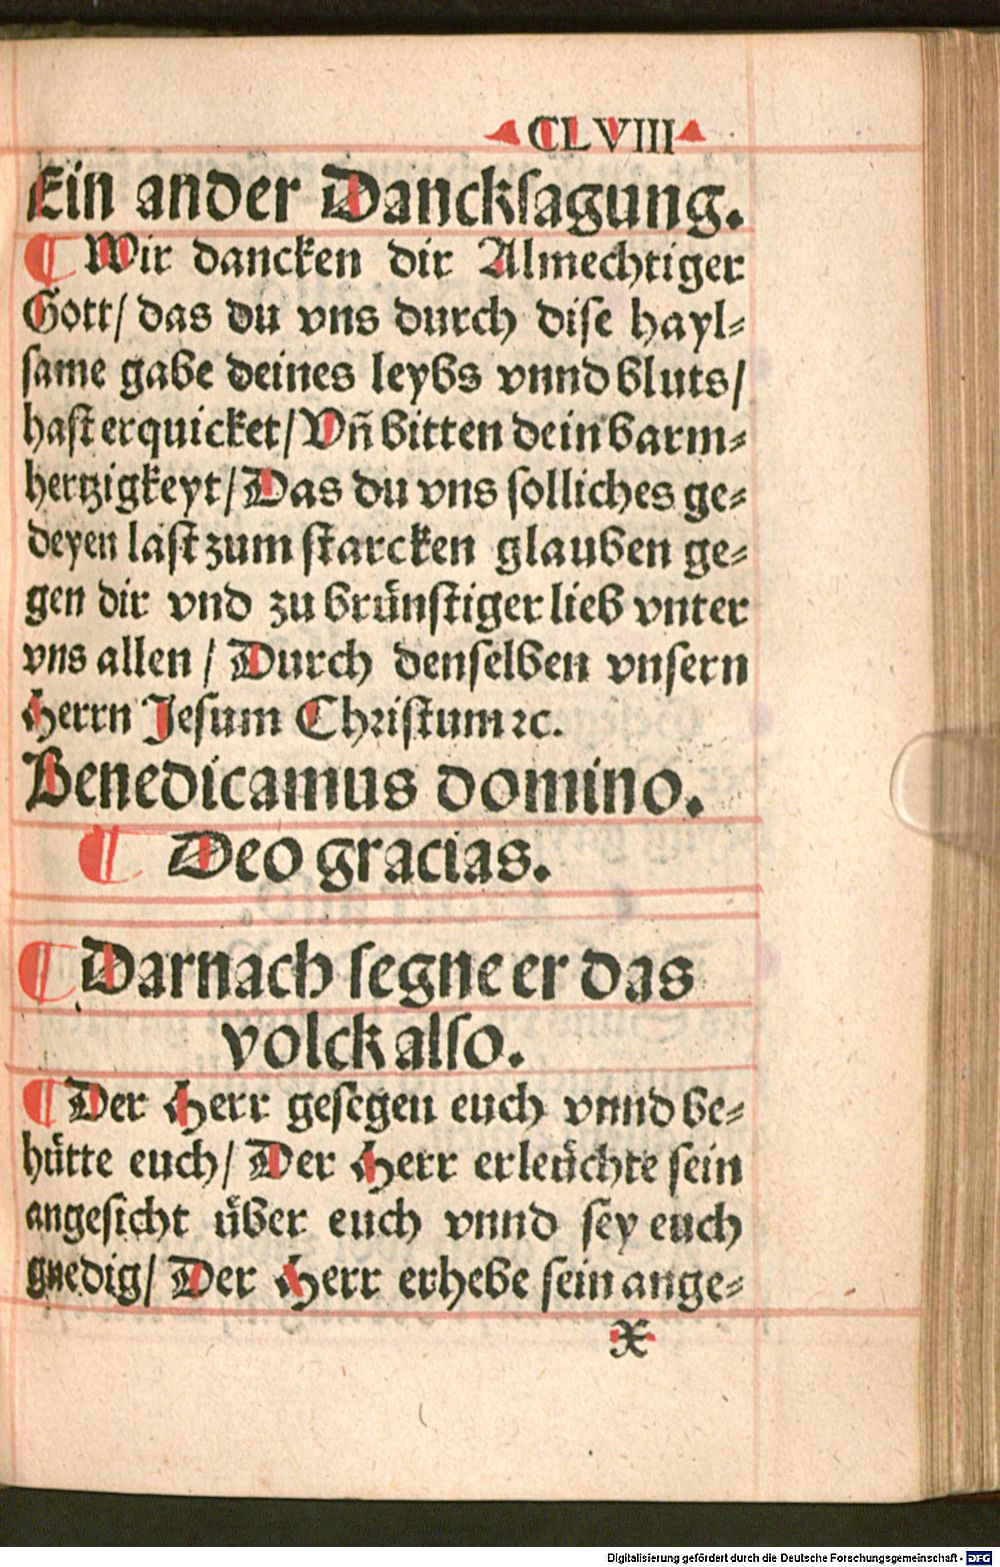 CLVIII
Ein ander Dancksagung.
¶ Wir dancken dir Almechtiger
Gott/ das du vns durch dise hayl⸗
same gabe deines leybs vnnd bluts/
hast erquicket/ Vñ bitten dein barm⸗
hertzigkeyt/ Das du vns solliches ge⸗
deyen last zum starcken glauben ge⸗
gen dir vnd zu brünstiger lieb vnter
vns allen / Durch denselben vnsern
Herrn Jesum Christum ꝛc.
Benedicamus domino.
¶ Deo gracias.
¶ Darnach segne er das
volck also.
¶ Der Herr gesegen euch vnnd be⸗
hütte euch/ Der Herr erleüchte sein
angesicht über euch vnnd sey euch
gnedig/ Der Herr erhebe sein ange⸗
X
Digitalisierung gefördert durch die Deutsche Forschungsgemeinschaft - DFG